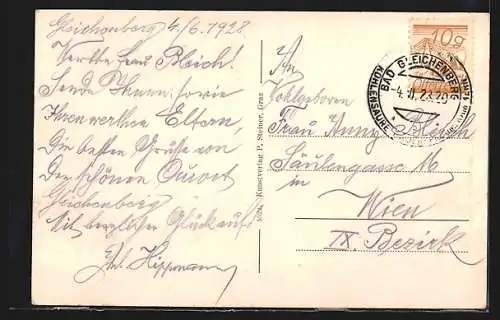 Gleichenberg 4/6.1928.
Werthe Frau Bleich!
Sende Ihnen sowie
Ihren werthen Eltern,
die besten Grüße von
dem schönen Curort
Gleichenberg
Mit herzlichem Glück auf
Hippmann
Kunstverlag P. Steiner, Graz
10g
BAD GLEICHENBERG
KOHLENSÄURE
An
Wohlgeboren
Frau Anny Bleich
Säulengasse 16
in
Wien
IX. Bezirk